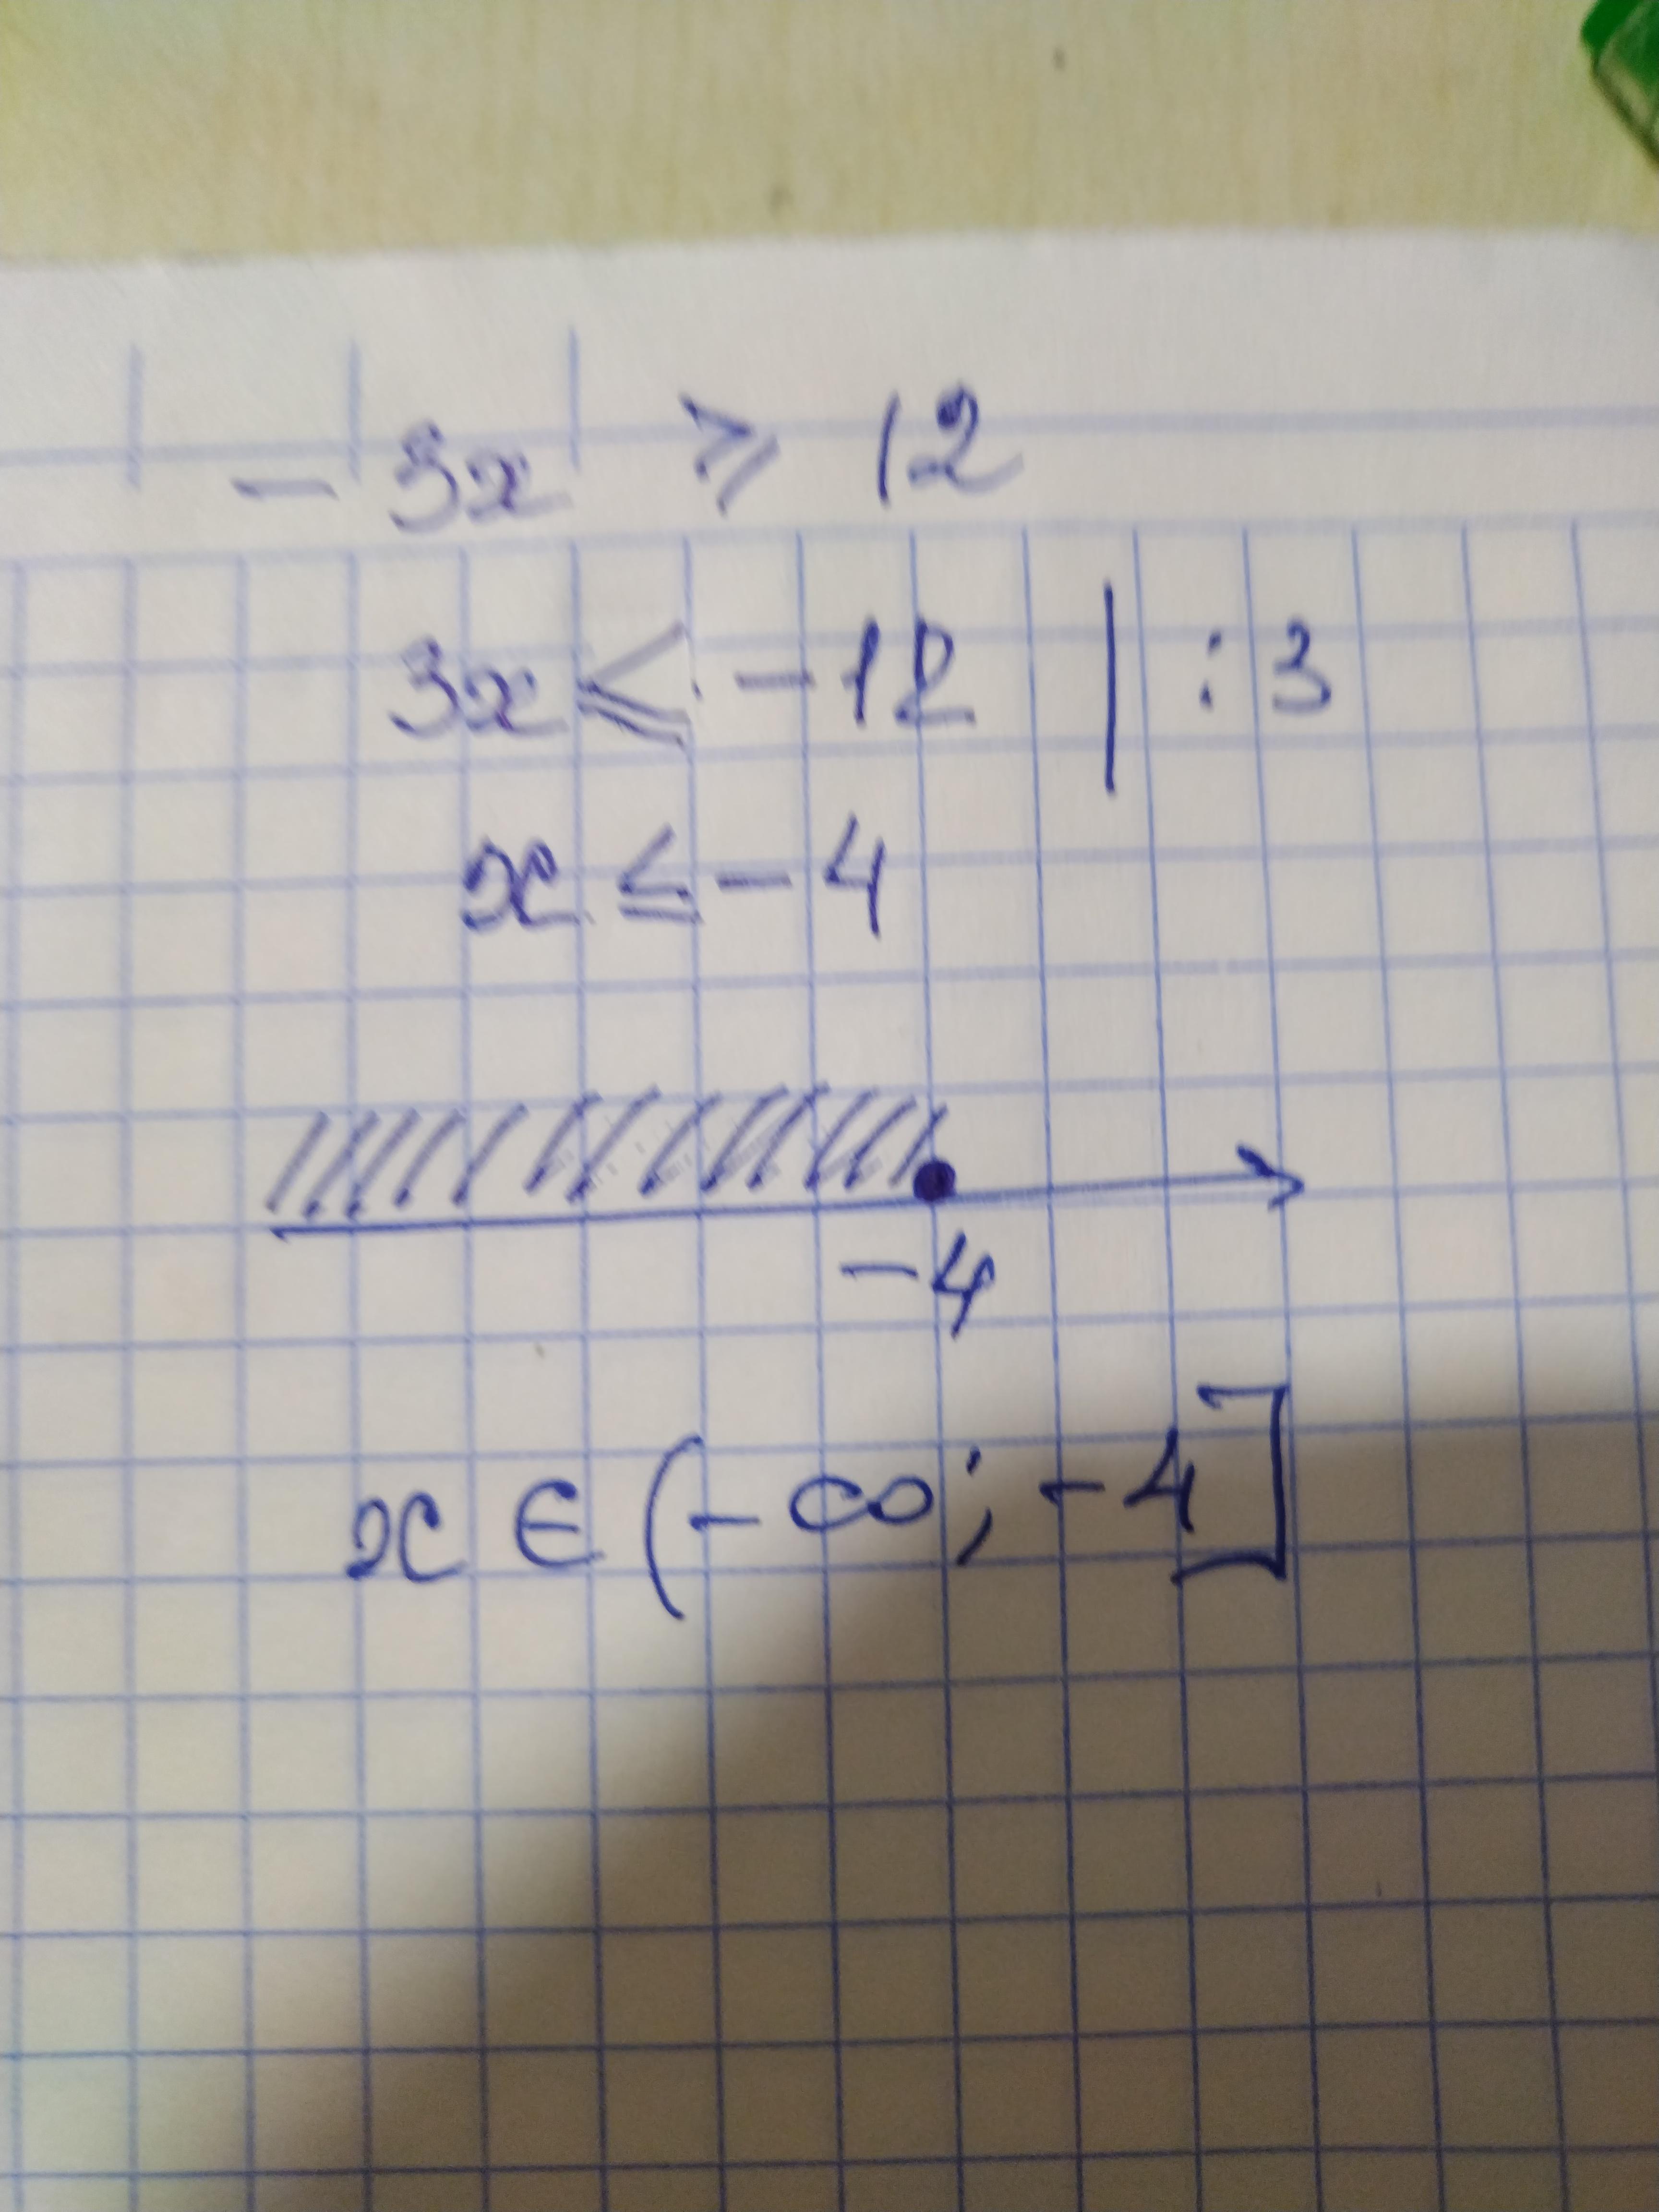 - 3x ⩾ 12
3x ⩽ -12 | : 3
x ≤ - 4
-4
x ∈ (- ∞; - 4]